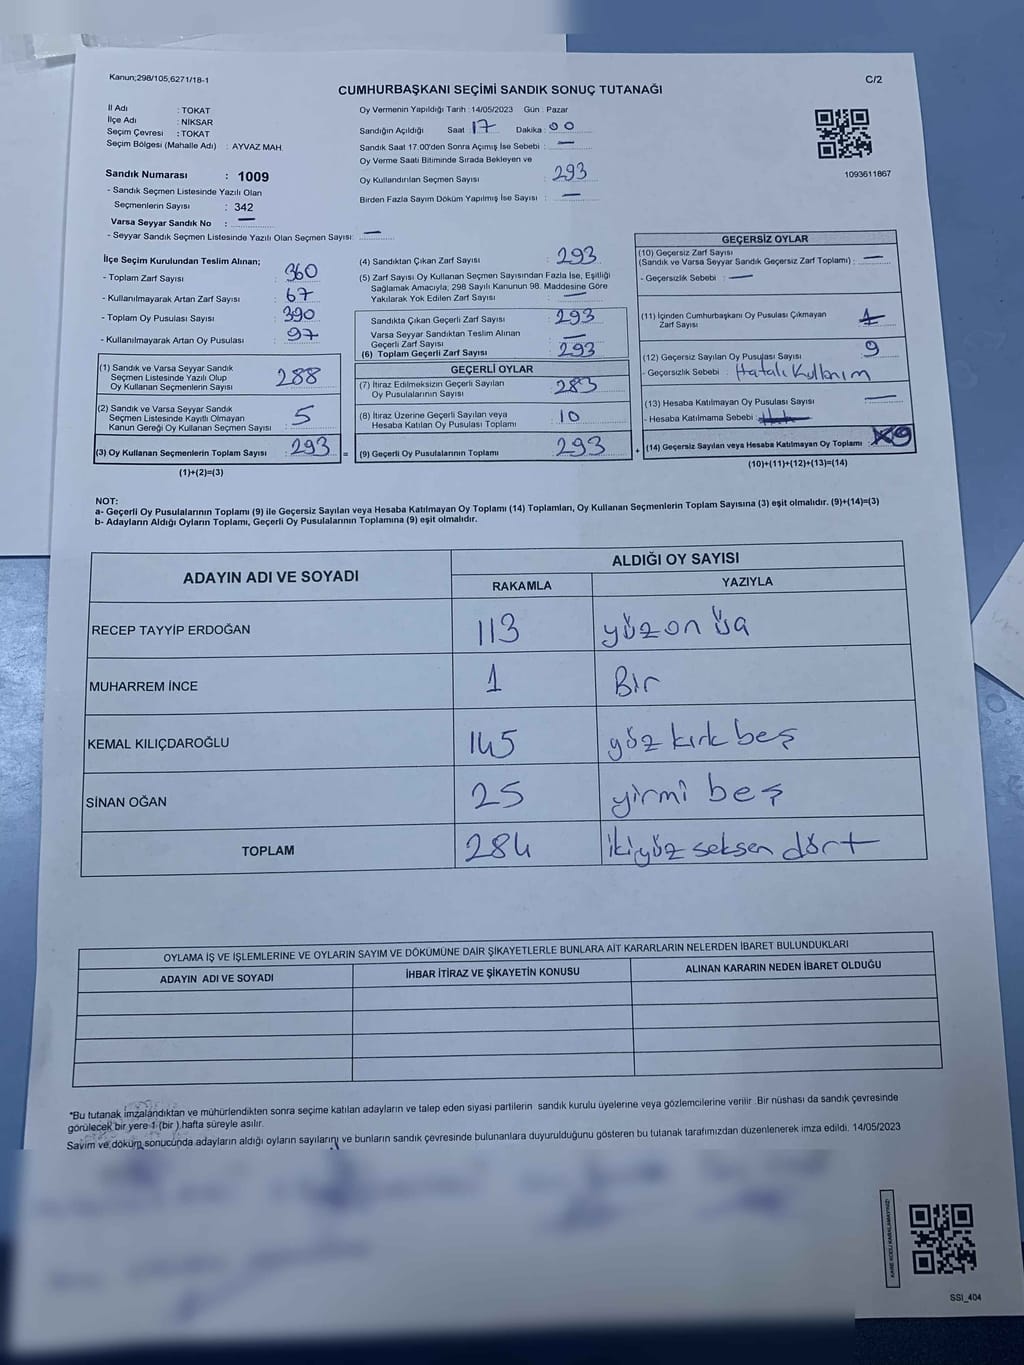 Kanun;298/105,6271/18-1
C/2
CUMHURBAŞKANI SEÇİMİ SANDIK SONUÇ TUTANAĞI
İl Adı : TOKAT
İlçe Adı : NİKSAR
Seçim Çevresi : TOKAT
Seçim Bölgesi (Mahalle Adı) : AYVAZ MAH.
Sandık Numarası : 1009
- Sandık Seçmen Listesinde Yazılı Olan
Seçmenlerin Sayısı : 342
Varsa Seyyar Sandık No : —
- Seyyar Sandık Seçmen Listesinde Yazılı Olan Seçmen Sayısı: —
Oy Vermenin Yapıldığı Tarih : 14/05/2023 Gün : Pazar
Sandığın Açıldığı Saat : 17 Dakika : 00
Sandık Saat 17:00'den Sonra Açımış İse Sebebi : —
Oy Verme Saati Bitiminde Sırada Bekleyen ve
Oy Kullandırılan Seçmen Sayısı : 293
Birden Fazla Sayım Döküm Yapılmış İse Sayısı : —
1093611867
İlçe Seçim Kurulundan Teslim Alınan;
- Toplam Zarf Sayısı : 360
- Kullanılmayarak Artan Zarf Sayısı : 67
- Toplam Oy Pusulası Sayısı : 390
- Kullanılmayarak Artan Oy Pusulası : 97
(1) Sandık ve Varsa Seyyar Sandık
Seçmen Listesinde Yazılı Olup
Oy Kullanan Seçmenlerin Sayısı : 288
(2) Sandık ve Varsa Seyyar Sandık
Seçmen Listesinde Kayıtlı Olmayan
Kanun Gereği Oy Kullanan Seçmen Sayısı : 5
(3) Oy Kullanan Seçmenlerin Toplam Sayısı : 293 =
(1)+(2)=(3)
(4) Sandıktan Çıkan Zarf Sayısı : 293
(5) Zarf Sayısı Oy Kullanan Seçmen Sayısından Fazla İse, Eşitliği
Sağlamak Amacıyla; 298 Sayılı Kanunun 98. Maddesine Göre
Yakılarak Yok Edilen Zarf Sayısı : —
Sandıkta Çıkan Geçerli Zarf Sayısı : 293
Varsa Seyyar Sandıktan Teslim Alınan
Geçerli Zarf Sayısı : —
(6) Toplam Geçerli Zarf Sayısı : 293
GEÇERLİ OYLAR
(7) İtiraz Edilmeksizin Geçerli Sayılan
Oy Pusulalarının Sayısı : 283
(8) İtiraz Üzerine Geçerli Sayılan veya
Hesaba Katılan Oy Pusulası Toplamı : 10
(9) Geçerli Oy Pusulalarının Toplamı : 293 +
GEÇERSİZ OYLAR
(10) Geçersiz Zarf Sayısı
(Sandık ve Varsa Seyyar Sandık Geçersiz Zarf Toplamı) : —
- Geçersizlik Sebebi : —
(11) İçinden Cumhurbaşkanı Oy Pusulası Çıkmayan
Zarf Sayısı : 1
(12) Geçersiz Sayılan Oy Pusulası Sayısı : 9
- Geçersizlik Sebebi : Hatalı Kullanım
(13) Hesaba Katılmayan Oy Pusulası Sayısı : —
- Hesaba Katılmama Sebebi :
(14) Geçersiz Sayılan veya Hesaba Katılmayan Oy Toplamı : 9
(10)+(11)+(12)+(13)=(14)
NOT:
a- Geçerli Oy Pusulalarının Toplamı (9) ile Geçersiz Sayılan veya Hesaba Katılmayan Oy Toplamı (14) Toplamları, Oy Kullanan Seçmenlerin Toplam Sayısına (3) eşit olmalıdır. (9)+(14)=(3)
b- Adayların Aldığı Oyların Toplamı, Geçerli Oy Pusulalarının Toplamına (9) eşit olmalıdır.
ADAYIN ADI VE SOYADI
ALDIĞI OY SAYISI
RAKAMLA YAZIYLA
RECEP TAYYİP ERDOĞAN 113 yüz on üç
MUHARREM İNCE 1 Bir
KEMAL KILIÇDAROĞLU 145 yüz kırk beş
SİNAN OĞAN 25 yirmi beş
TOPLAM 284 ikiyüz seksen dört
OYLAMA İŞ VE İŞLEMLERİNE VE OYLARIN SAYIM VE DÖKÜMÜNE DAİR ŞİKAYETLERLE BUNLARA AİT KARARLARIN NELERDEN İBARET BULUNDUKLARI
ADAYIN ADI VE SOYADI İHBAR İTİRAZ VE ŞİKAYETİN KONUSU ALINAN KARARIN NEDEN İBARET OLDUĞU
*Bu tutanak imzalandıktan ve mühürlendikten sonra seçime katılan adayların ve talep eden siyasi partilerin sandık kurulu üyelerine veya gözlemcilerine verilir. Bir nüshası da sandık çevresinde
görülecek bir yere 1 (bir ) hafta süreyle asılır.
Sayım ve döküm sonucunda adayların aldığı oyların sayılarını ve bunların sandık çevresinde bulunanlara duyurulduğunu gösteren bu tutanak tarafımızdan düzenlenerek imza edildi. 14/05/2023
KARE KODU KARALAMAYINIZ!
SSI_404